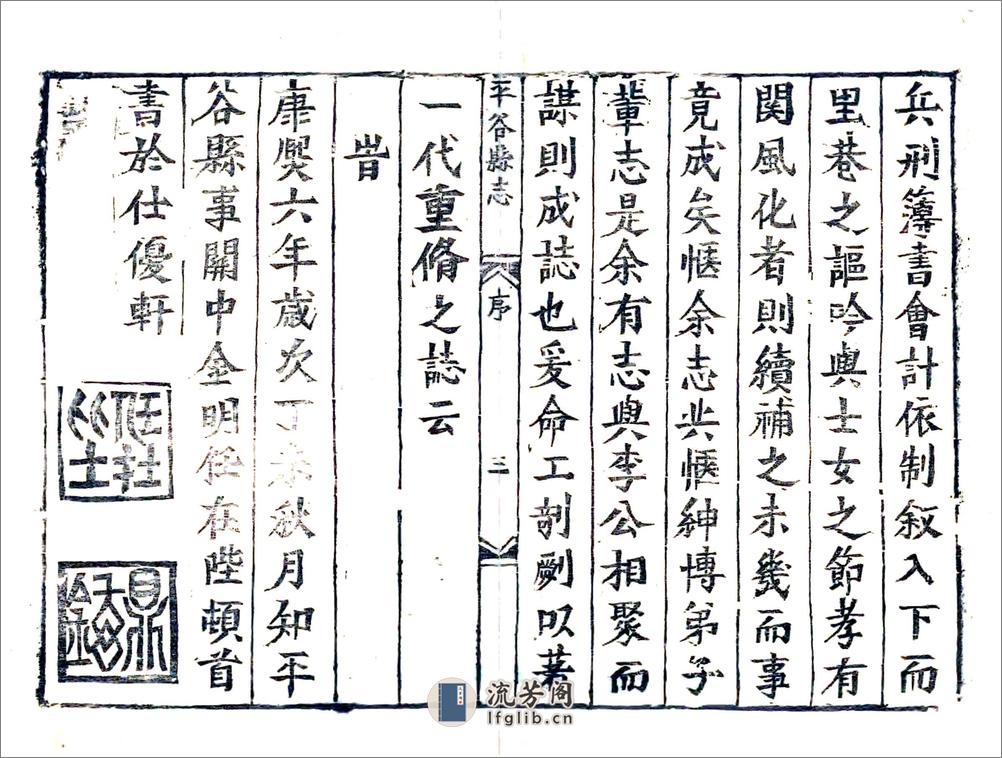 兵刑簿書會計依制叙入下而
里巷之謳吟與士女之節孝有
関風化者則續補之未幾而事
竟成矣愜余志共愜紳博弟子
輩志是余有志與李公相聚而
謀則成誌也爰命工剞劂以著
平谷縣志
序
三
一代重脩之誌云
旹
康熙六年歲次丁未秋月知平
谷縣事関中金明任在陛頓首
書於仕優軒
流芳阁
lfglib.cn